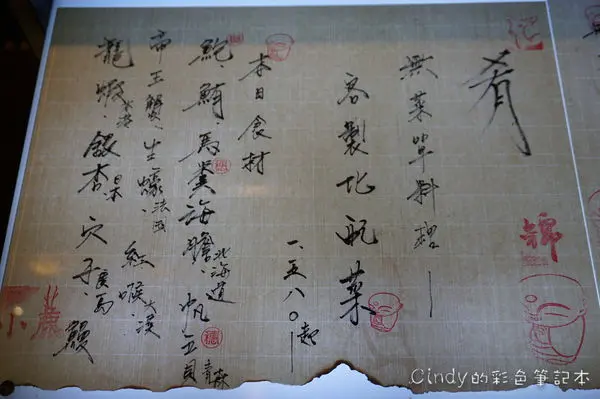 肴
無菜單料理
客製化配菜
一、五八〇起
本日食材
鮑鮪馬糞海膽、北海道 帆立貝 青森
帝王蟹、生蠔、法國 紅喉 大溪
龍蝦、銀杏 日本 穴子、廣島 鰻
錦
Cindy的彩色筆記本